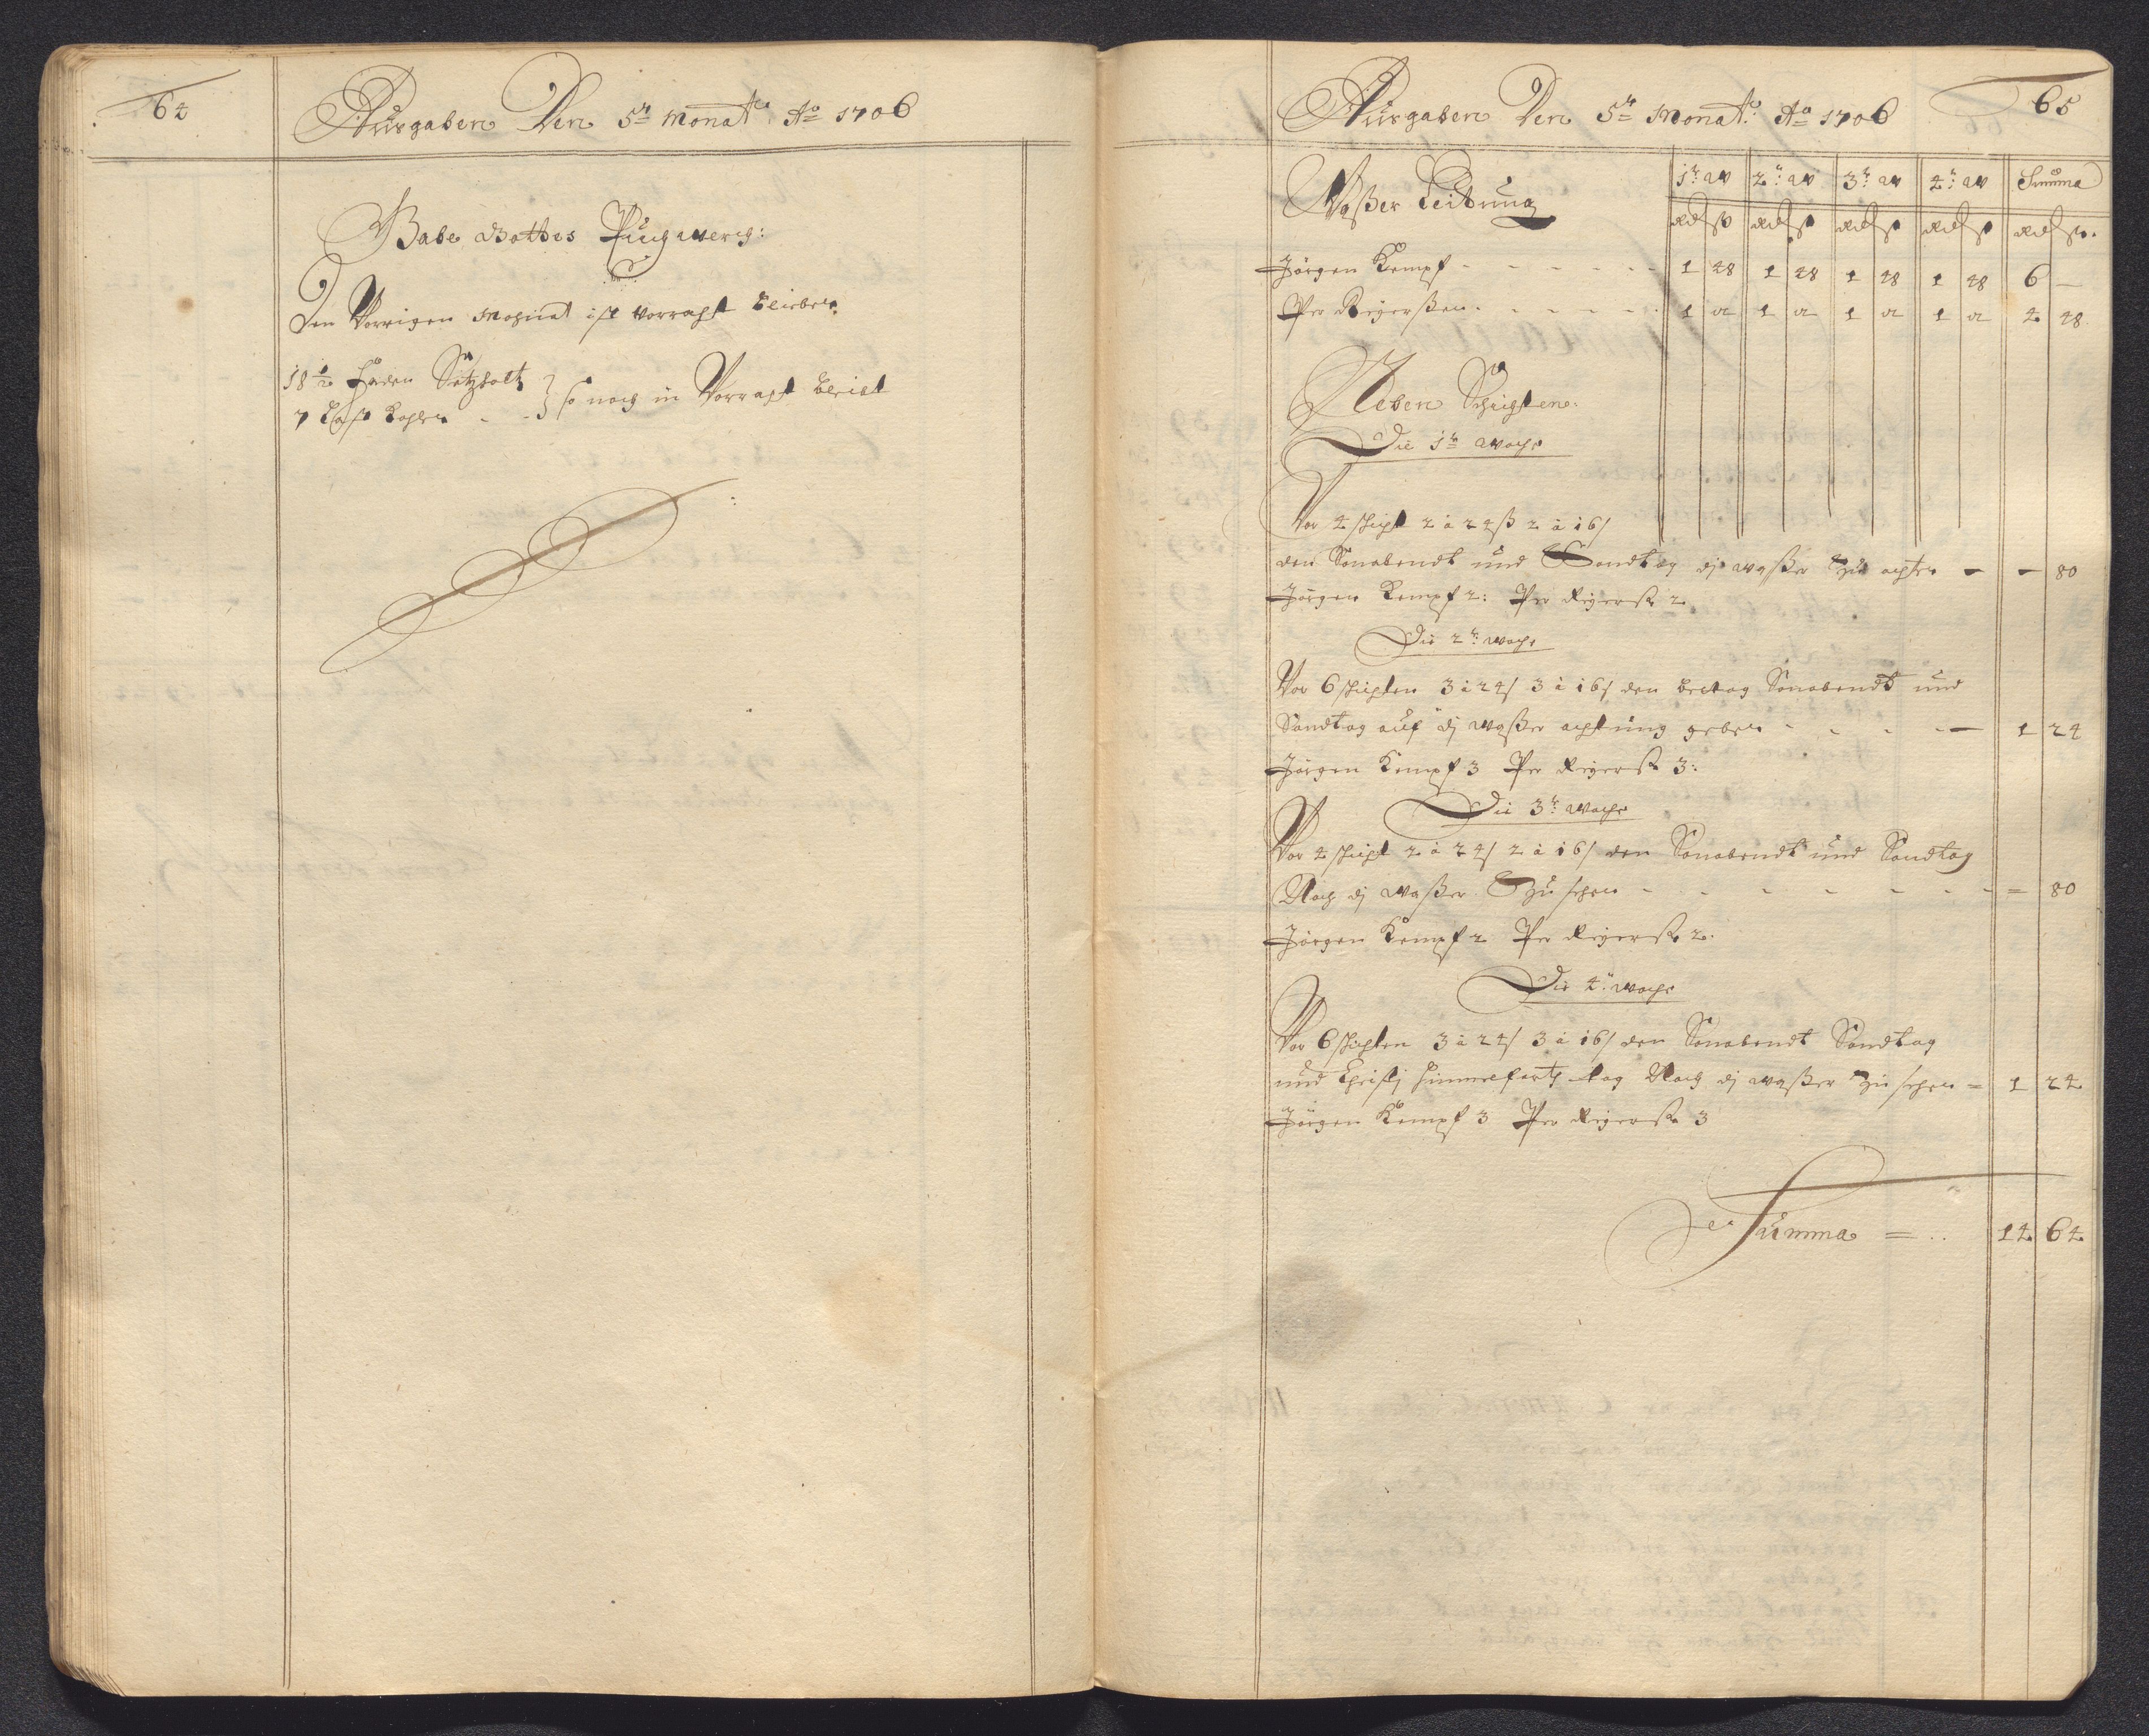 64
Ausgaben Den 5ᵗ Monat Aº 1706
Gabe Gottes Puchwerch:
Den Vorrigen Mohnat ist Vorraht blieben
18 1/2 faden Sätzholtz
7 Last Kohlen - - } so noch in Vorraht bleibt
65
Ausgaben Den 5ᵗ Monat: Aº 1706
Waßer Leitung
1ᵗ: W 2ᵗ: W 3ᵗ: W 4ᵗ: W Summa
Rd ß Rd ß Rd ß Rd ß Rd ß.
Jörgen Kempf - - - - - - 1 48 1 48 1 48 1 48 6 —
Per Reÿerßen - - - - - - 1 12 1 12 1 12 1 12 4 48
Neben Schichten:
Die 1ᵗ Woche
Vor 4 schicht 2 à 24ß 2 à 16ß
den Sonabendt und Sondtag dj Waßer Zu achten - - 80
Jörgen Kempf 2: Per Reÿerß 2
Die 2ᵗ: Woche
Vor 6 schichten 3 à 24ß 3 à 16ß den bettag Sonabendt und
Sondtag auf dj Waßer achtung geben - - - - 1 24
Jörgen Kempf 3 Per Reÿerß 3:
Die 3ᵗ: Woche
Vor 4 schicht 2 à 24ß 2 à 16ß den Sonabendt und Sondtag
Nach dj Waßer Zu sehen - - - - - - = 80
Jörgen Kempf 2 Per Reÿerß 2.
Die 4: Woche
Vor 6 schichten 3 à 24ß 3 à 16ß den Sonabendt Sondtag
und Christj himmelfarts tag Nach dj Waßer Zu sehen = 1 24
Jörgen Kempf 3 Per Reÿerß 3
Summa = .. 14 64